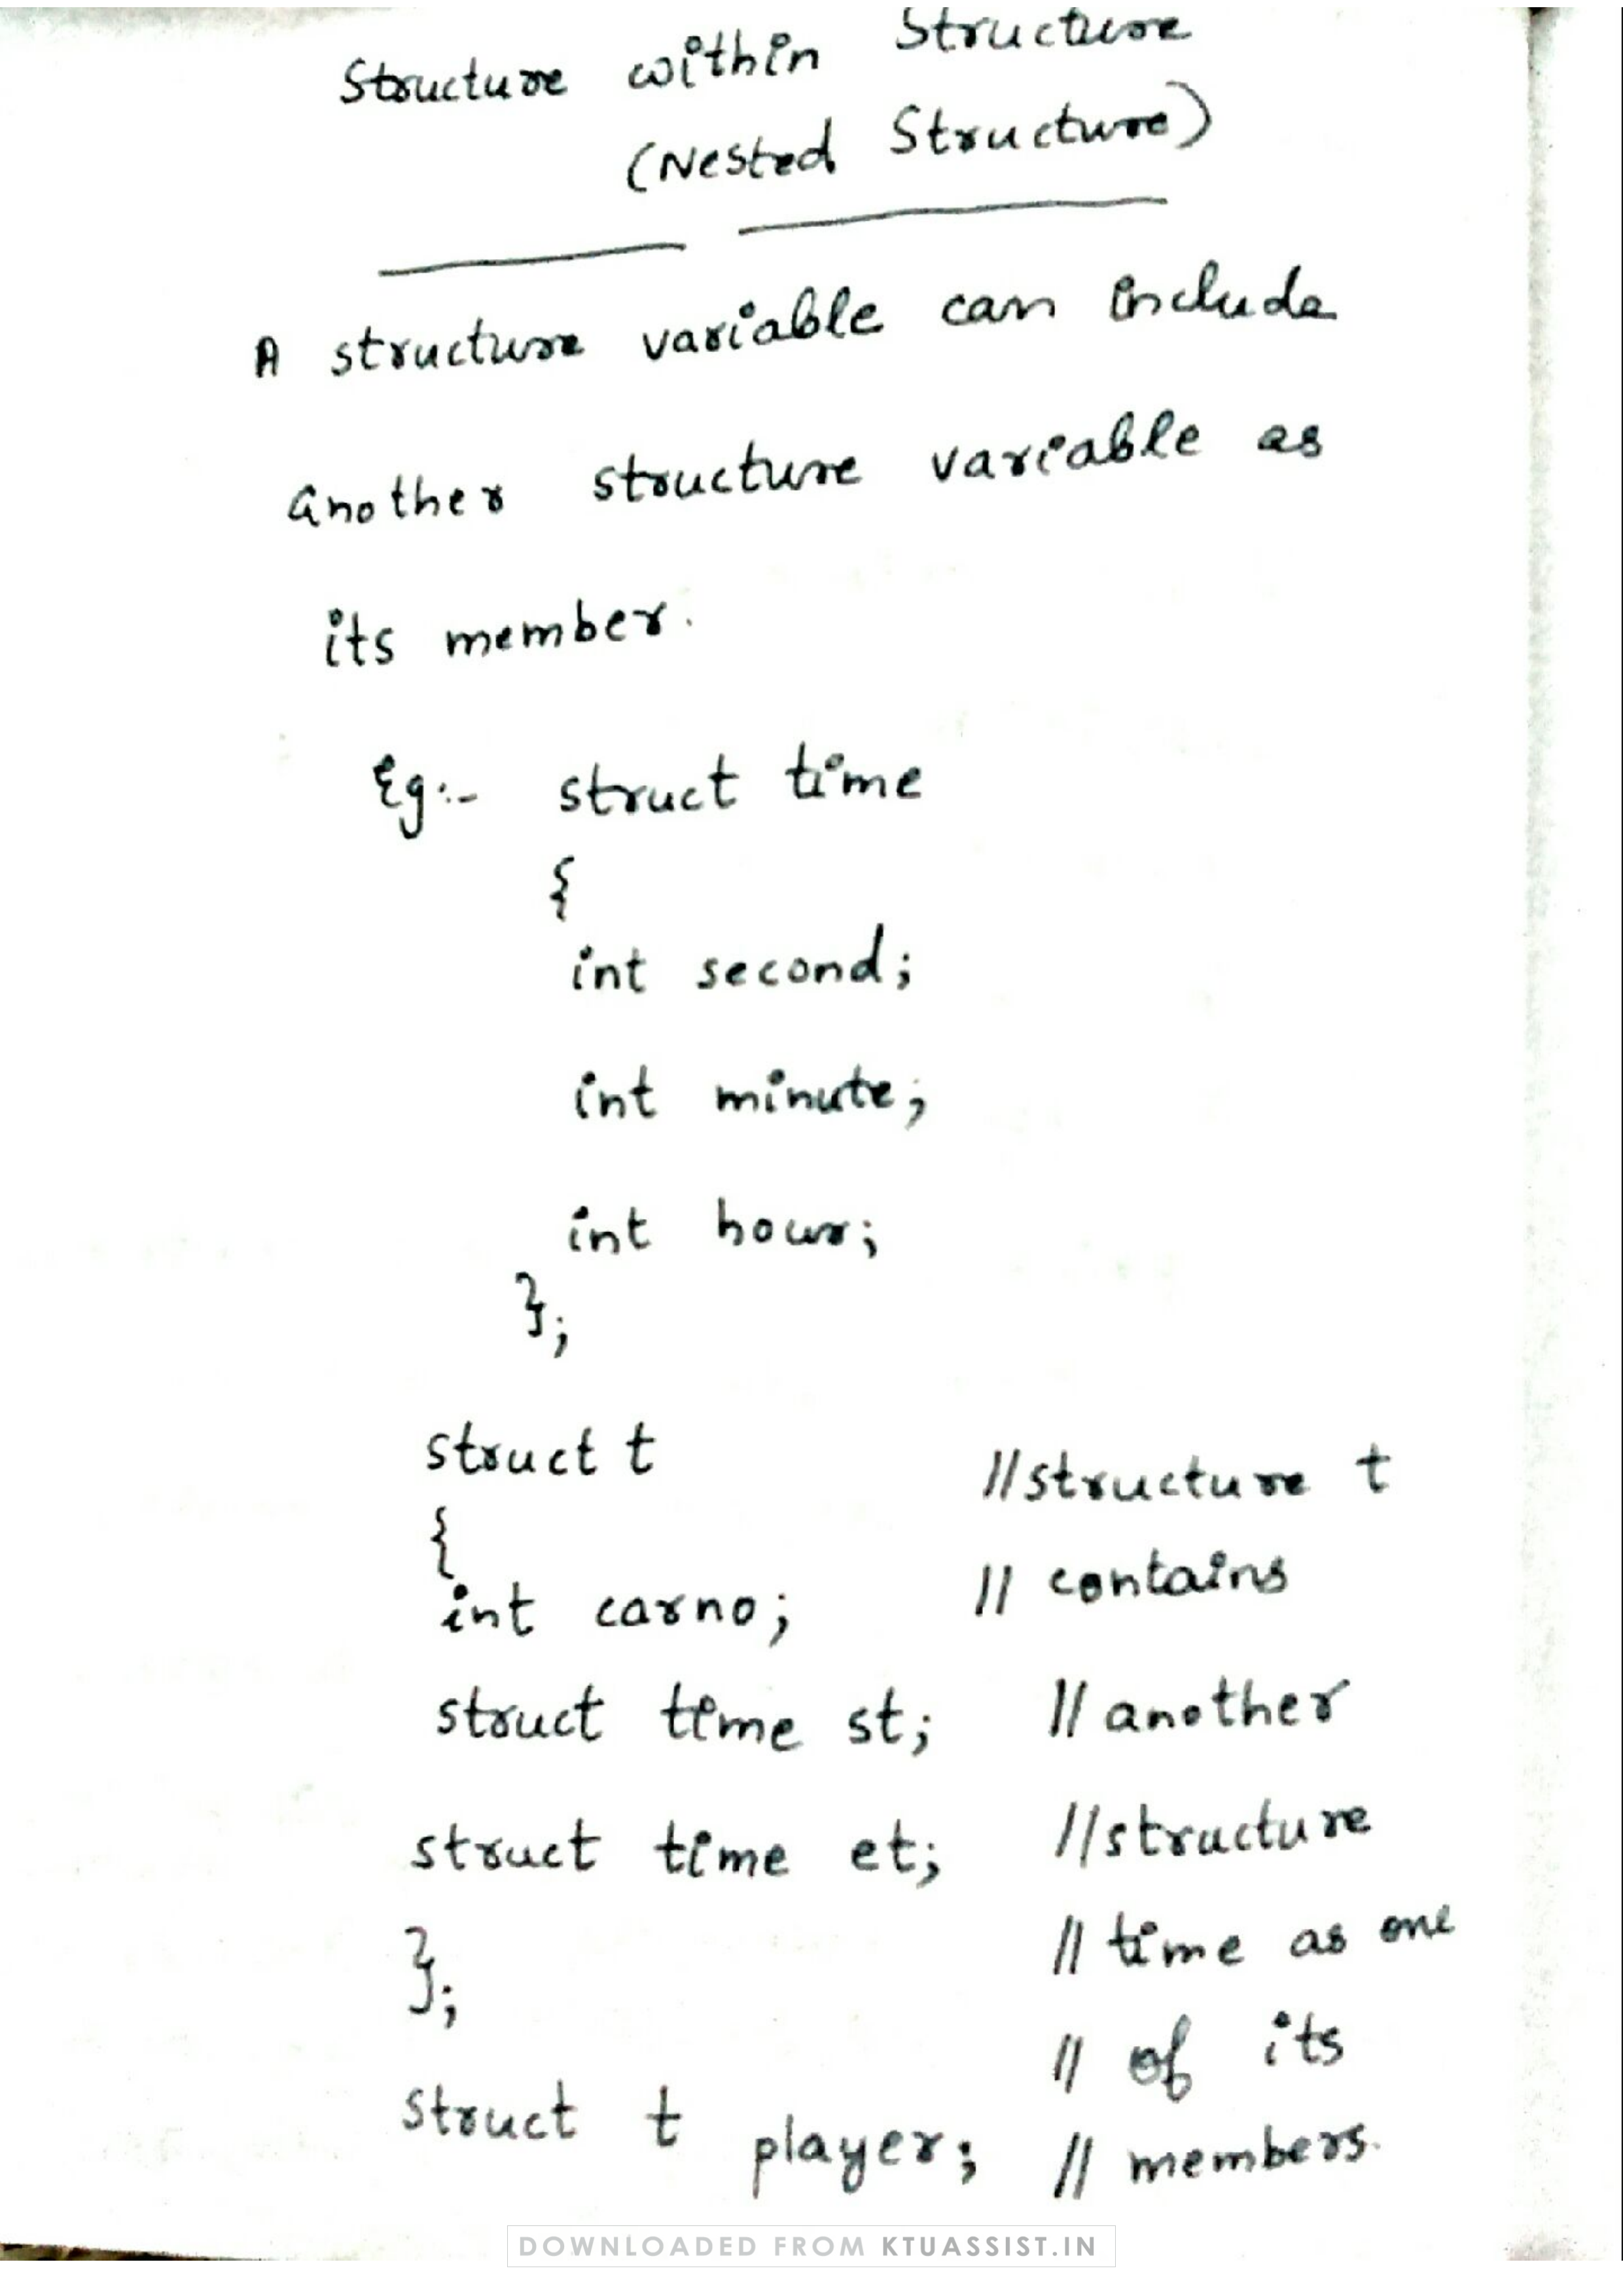 Structure within Structure
(Nested Structure)
A structure variable can include
another structure variable as
its member.
Eg:- struct time
{
int second;
int minute;
int hour;
};
struct t //structure t
{
int carno; // contains
struct time st; // another
struct time et; //structure
}; // time as one
// of its
struct t player; // members.
DOWNLOADED FROM KTUASSIST.IN